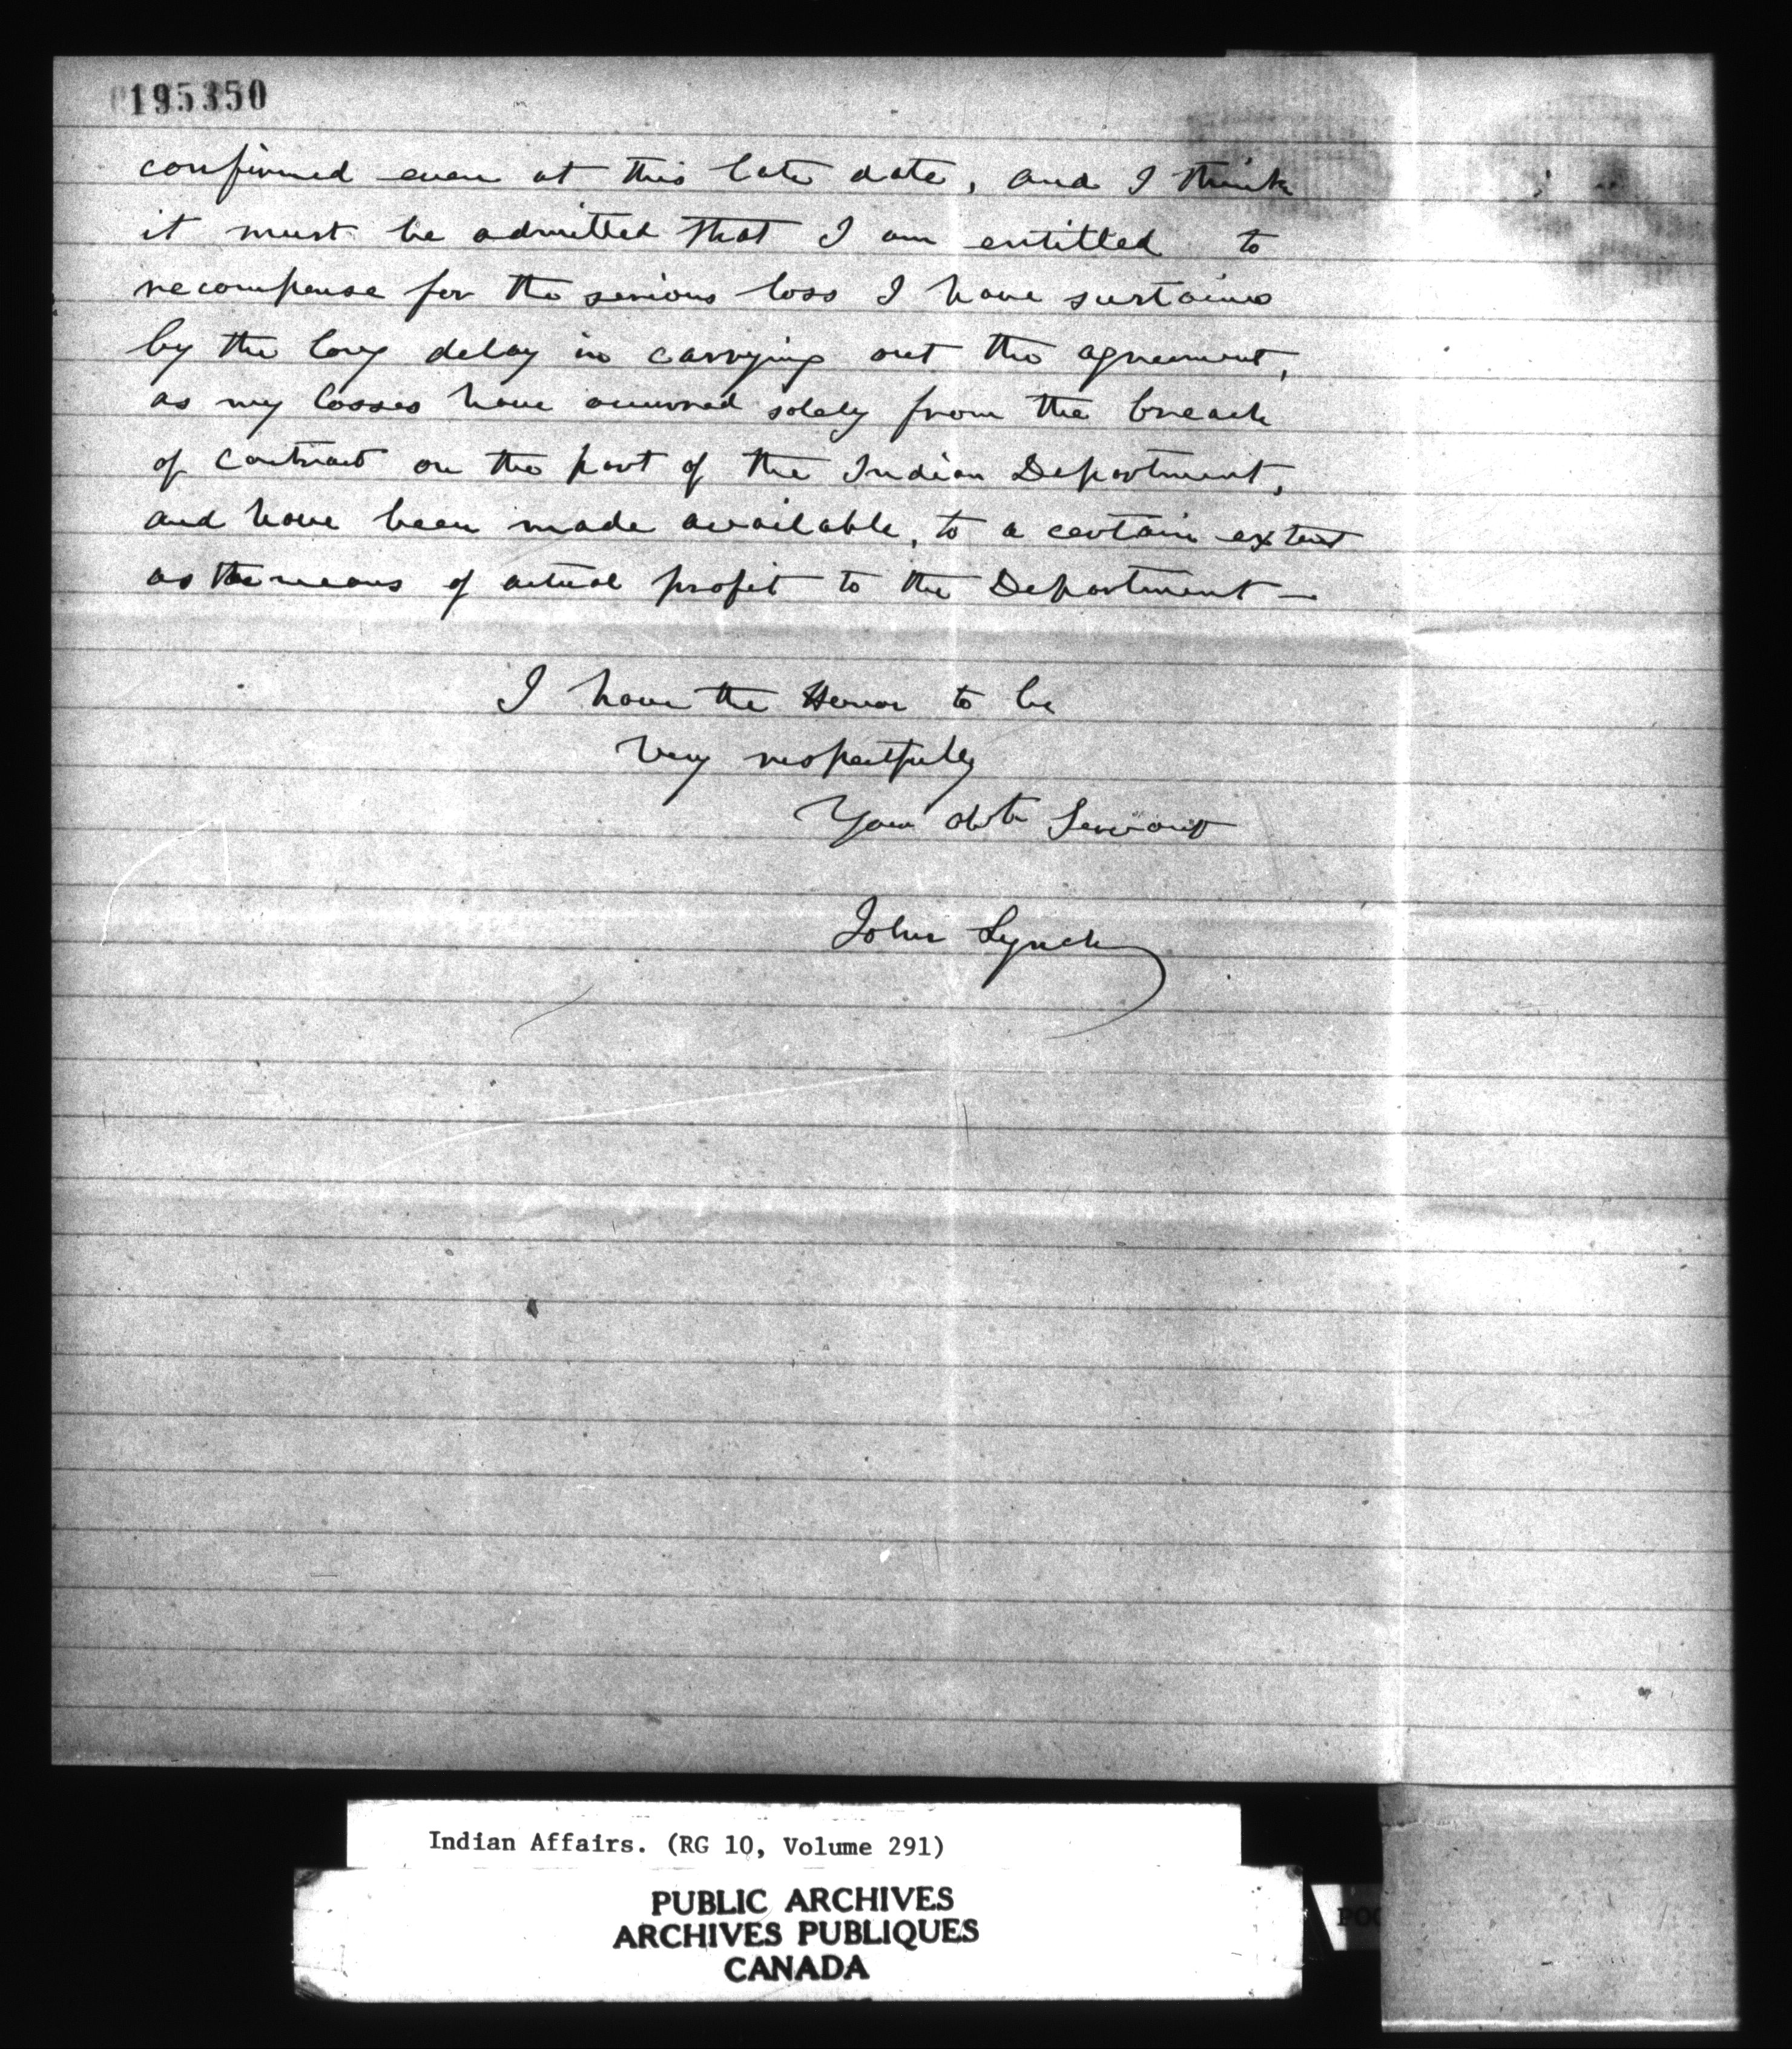 195350
confirmed even at this late date, and I think
it must be admitted that I am entitled to
recompense for the serious loss I have sustained
by the long delay in carrying out the agreement,
as my losses have occurred solely from the breach
of contract on the part of the Indian Department,
and have been made available, to a certain extent
as the means of actual profit to the Department —
I have the Honor to be
Very respectfully
Your obt Servant
John Lynch
Indian Affairs. (RG 10, Volume 291)
PUBLIC ARCHIVES
ARCHIVES PUBLIQUES
CANADA